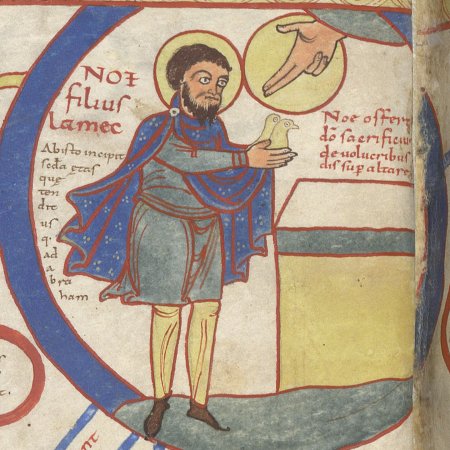 NOE
filius
lamec
Ab isto incipit
seda etas
que
ten
dit
us
q. ad
a
bra
ham
Noe offert
dō sacrificiu
de volucribus
dis sup altare